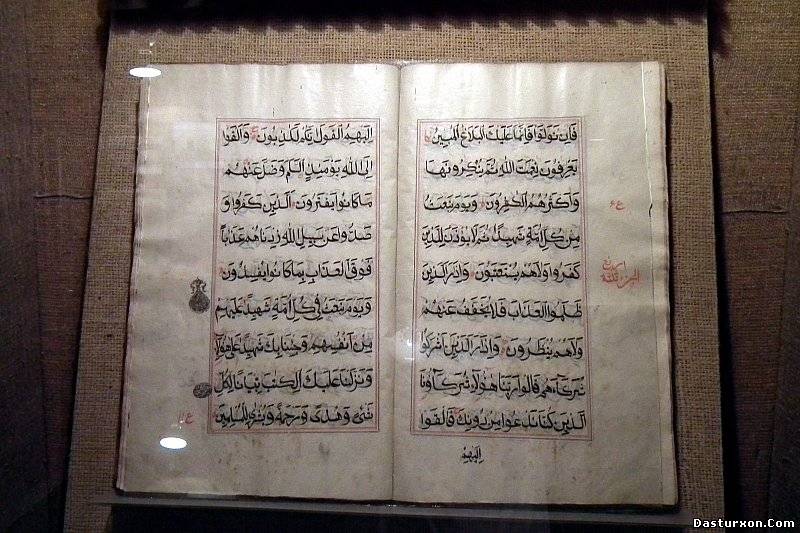 فَاِنْ تَوَلَّوْا فَاِنَّمَا عَلَيْكَ الْبَلَاغُ الْمُبِينُ
يَعْرِفُونَ نِعْمَتَ اللّٰهِ ثُمَّ يُنْكِرُونَهَا
وَاَكْثَرُهُمُ الْكٰفِرُونَ وَيَوْمَ نَبْعَثُ
مِنْ كُلِّ اُمَّةٍ شَهِيدًا ثُمَّ لَا يُؤْذَنُ لِلَّذِينَ
كَفَرُوا وَلَا هُمْ يُسْتَعْتَبُونَ وَاِذَا رَاَ الَّذِينَ
ظَلَمُوا الْعَذَابَ فَلَا يُخَفَّفُ عَنْهُمْ
وَلَا هُمْ يُنْظَرُونَ وَاِذَا رَاَ الَّذِينَ اَشْرَكُوا
شُرَكَآءَهُمْ قَالُوا رَبَّنَا هٰؤُلَآءِ شُرَكَآؤُنَا
الَّذِينَ كُنَّا نَدْعُوا مِنْ دُونِكَ فَاَلْقَوْا
اِلَيْهِمُ
اِلَيْهِمُ الْقَوْلَ اِنَّكُمْ لَكٰذِبُونَ وَاَلْقَوْا
اِلَى اللّٰهِ يَوْمَئِذٍ السَّلَمَ وَضَلَّ عَنْهُمْ
مَا كَانُوا يَفْتَرُونَ اَلَّذِينَ كَفَرُوا وَ
صَدُّوا عَنْ سَبِيلِ اللّٰهِ زِدْنَاهُمْ عَذَابًا
فَوْقَ الْعَذَابِ بِمَا كَانُوا يُفْسِدُونَ
وَيَوْمَ نَبْعَثُ فِي كُلِّ اُمَّةٍ شَهِيدًا عَلَيْهِمْ
مِنْ اَنْفُسِهِمْ وَجِئْنَا بِكَ شَهِيدًا عَلٰى هٰؤُلَآءِ
وَنَزَّلْنَا عَلَيْكَ الْكِتٰبَ تِبْيَانًا لِكُلِّ
شَيْءٍ وَهُدًى وَرَحْمَةً وَبُشْرٰى لِلْمُسْلِمِينَ
Dasturxon.Com